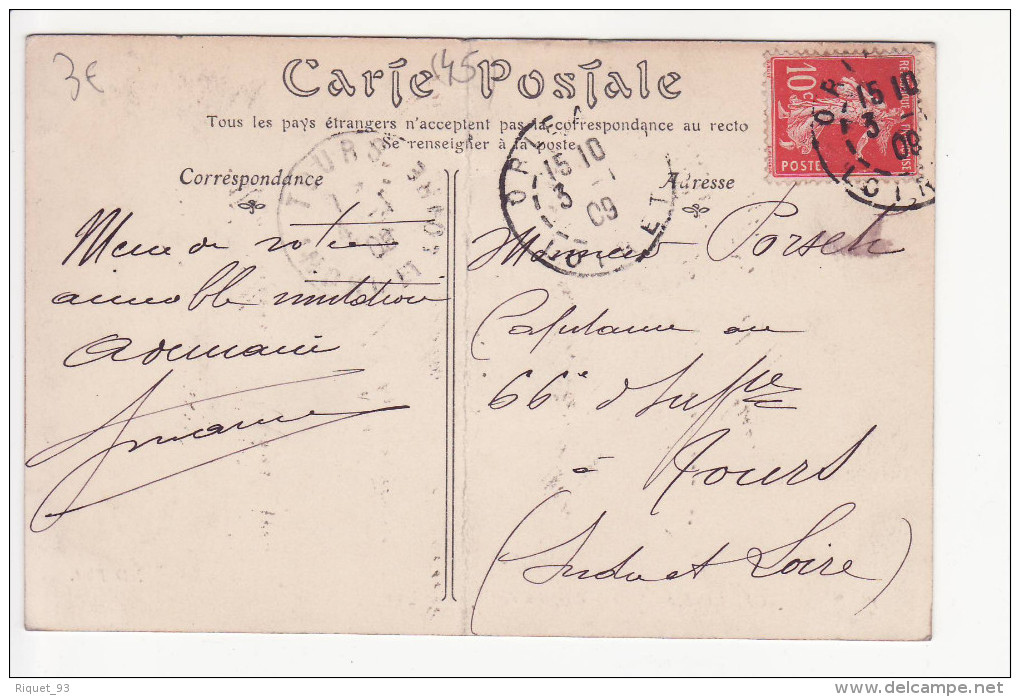 3€
145
Carte Postale
Tous les pays étrangers n'acceptent pas la correspondance au recto
Se renseigner à la poste
Correspondance
Adresse
10c
POSTES
15 10
3
09
LOIRET
15 10
3
09
LOIR
TOURS
09
Monsieur Porsch
Capitaine au
66e d'Inff
à Tours
(Indre et Loire)
de votre
aimable invitation
Riquet_93
www.delcampe.net